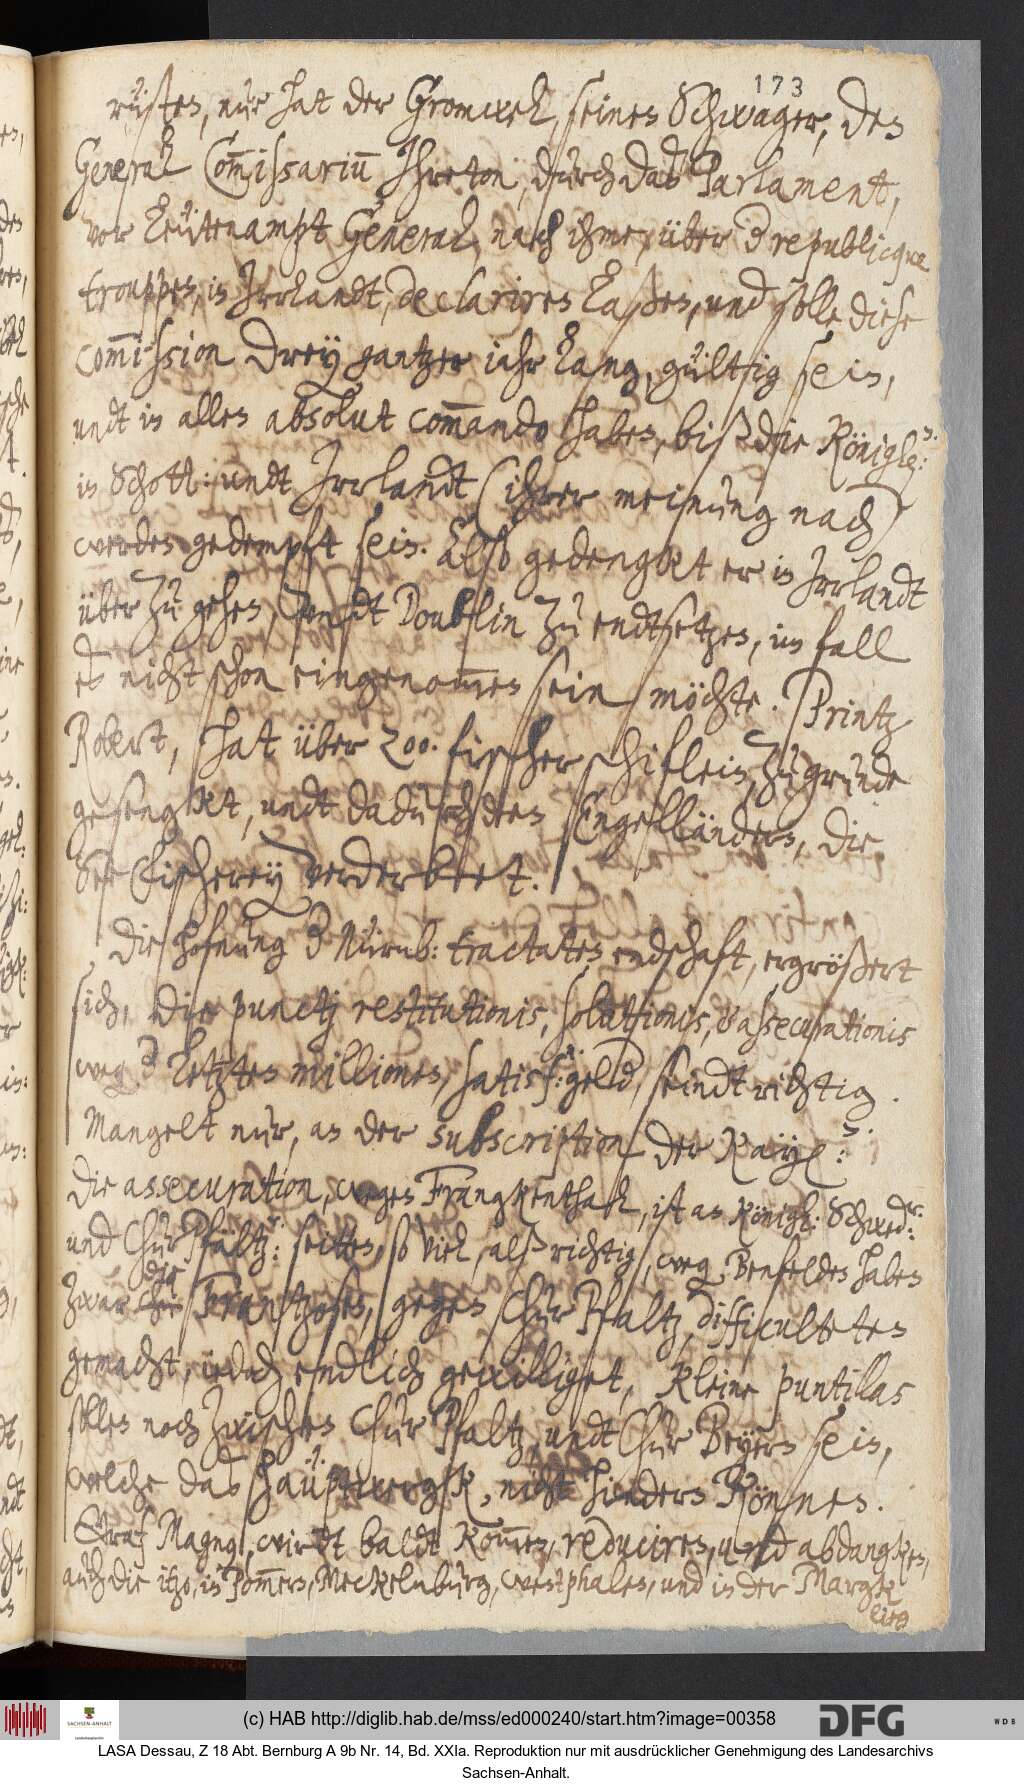 173
rüsten, nur hat der Cromwel, seinen Schwager, den
General Com̄issariū Ihreton, durch das Parlament,
vor Leütenampt General, nach ihme, über d republicque
trouppen, in Irrlandt, declariren laßen, und solle diese
com̄ission drey gantzer iahr lang, gültig sein,
undt in allen absolut com̄ando haben, biß die Königl:n
in Schott: undt Irrlandt (ihrer meinung nach)
werden gedempft sein. Also gedengket er in Irrlandt
über zu gehen, undt Doublin zu endtsetzen, im fall
es nicht schon eingenom̄en sein möchte. Printz
Robert, hat über 200. fischer schiflein, zu grunde
gesengket, undt dadurch den Engelländern, die
See Fischerey verderbeet.
Die hofnung d Nürnb: tractaten endschaft, ergrößert
sich, die punctj restitutionis, solutionis, & assecurationis
weg d letzten millionen, satisf:n: geld, seindt richtig.
Mangelt nur, an der subscription der Kayl:n.
Die assecuration, wegen Frangkenthal, ist an Königl: Schwed:er
und ChurPfältz:r seitten, so viel, alß richtig, weg Benfelden haben
zwar die Frantzosen, gegen ChurPfaltz, difficulteten
gemacht, iedoch endlich gewilliget, Kleine puntillas
sollen noch zwischen ChurPfaltz, undt Chur Beyern sein,
welche das haüptwergk, nicht hindern können.
Graf Magng, wirdt baldt kom̄en, reduciren, und abdangken,
auch die itzo, in Pom̄ern, Meckelnburg, westphalen, und in der Margk
lieg
(c) HAB http://diglib.hab.de/mss/ed000240/start.htm?image=00358
SACHSEN-ANHALT
DFG
WDB
LASA Dessau, Z 18 Abt. Bernburg A 9b Nr. 14, Bd. XXIa. Reproduktion nur mit ausdrücklicher Genehmigung des Landesarchivs
Sachsen-Anhalt.